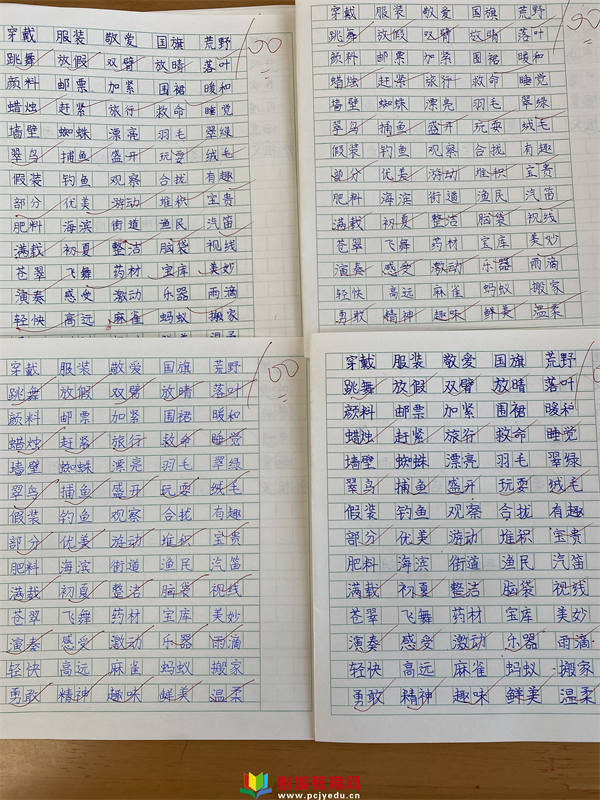 穿戴 服装 敬爱 国旗 荒野
跳舞 放假 双臂 放晴 落叶
颜料 邮票 加紧 围裙 暖和
蜡烛 赶紧 旅行 救命 睡觉
墙壁 蜘蛛 漂亮 羽毛 翠绿
翠鸟 捕鱼 盛开 玩耍 绒毛
假装 钓鱼 观察 合拢 有趣
部分 优美 游动 堆积 宝贵
肥料 海滨 街道 渔民 汽笛
满载 初夏 整洁 脑袋 视线
苍翠 飞舞 药材 宝库 美妙
演奏 感受 激动 乐器 雨滴
轻快 高远 麻雀 蚂蚁 搬家
100
穿戴 服装 敬爱 国旗 荒野
跳舞 放假 双臂 放晴 落叶
颜料 邮票 加紧 围裙 暖和
蜡烛 赶紧 旅行 救命 睡觉
墙壁 蜘蛛 漂亮 羽毛 翠绿
翠鸟 捕鱼 盛开 玩耍 绒毛
假装 钓鱼 观察 合拢 有趣
部分 优美 游动 堆积 宝贵
肥料 海滨 街道 渔民 汽笛
满载 初夏 整洁 脑袋 视线
苍翠 飞舞 药材 宝库 美妙
演奏 感受 激动 乐器 雨滴
轻快 高远 麻雀 蚂蚁 搬家
勇敢 精神 趣味 鲜美 温柔
穿戴 服装 敬爱 国旗 荒野
跳舞 放假 双臂 放晴 落叶
颜料 邮票 加紧 围裙 暖和
蜡烛 赶紧 旅行 救命 睡觉
墙壁 蜘蛛 漂亮 羽毛 翠绿
翠鸟 捕鱼 盛开 玩耍 绒毛
假装 钓鱼 观察 合拢 有趣
部分 优美 游动 堆积 宝贵
肥料 海滨 街道 渔民 汽笛
满载 初夏 整洁 脑袋 视线
苍翠 飞舞 药材 宝库 美妙
演奏 感受 激动 乐器 雨滴
轻快 高远 麻雀 蚂蚁 搬家
勇敢 精神 趣味 鲜美 温柔
100
穿戴 服装 敬爱 国旗 荒野
跳舞 放假 双臂 放晴 落叶
颜料 邮票 加紧 围裙 暖和
蜡烛 赶紧 旅行 救命 睡觉
墙壁 蜘蛛 漂亮 羽毛 翠绿
翠鸟 捕鱼 盛开 玩耍 绒毛
假装 钓鱼 观察 合拢 有趣
部分 优美 游动 堆积 宝贵
肥料 海滨 街道 渔民 汽笛
满载 初夏 整洁 脑袋 视线
苍翠 飞舞 药材 宝库 美妙
演奏 感受 激动 乐器 雨滴
轻快 高远 麻雀 蚂蚁 搬家
勇敢 精神 趣味 鲜美 温柔
www.pcjyedu.cn